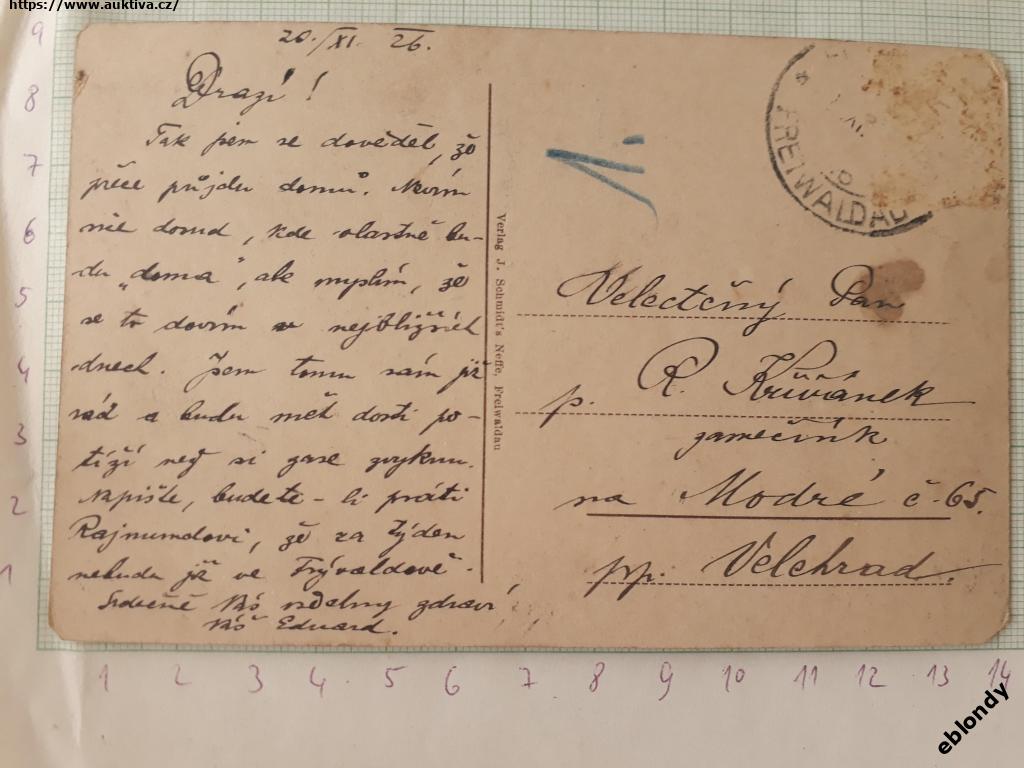 https://www.auktiva.cz/
20./XI. 26.
Drazí!
Tak jsem se dověděl, že
přece půjdu domů. Nevím
sice dosud, kde vlastně bu-
du „doma“, ale myslím, že
se to dovím v nejbližších
dnech. Jsem tomu sám již
rád a budu mět dosti po-
tíží než si zase zvyknu.
Napište, budete-li psáti
Rajmundovi, že za týden
nebudu již ve Frývaldově.
Srdečně Vás všechny zdraví
Váš Eduard.
Verlag J. Schmidt's Neffe, Freiwaldau
FREIWALDAU
Velectěný Pan
p. R. Křivánek
zámečník
na Modré č. 65.
pp. Velehrad.
9
8
7
6
5
4
3
2
1
1 2 3 4 5 6 7 8 9 10 11 12 13 14
eblondy